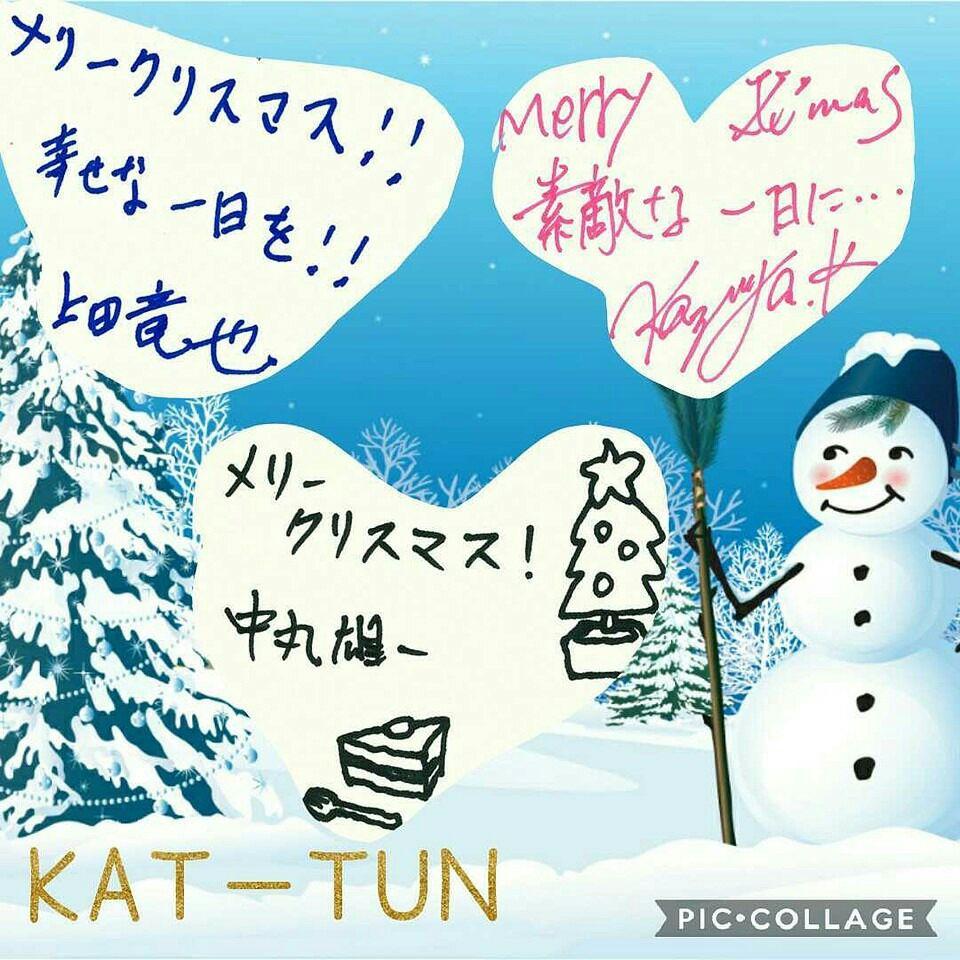 メリークリスマス!!
幸せな一日を!!
上田竜也
Merry X'mas
素敵な一日に…
Kazuya.K
メリー
クリスマス!
中丸雄一
KAT-TUN
PIC•COLLAGE